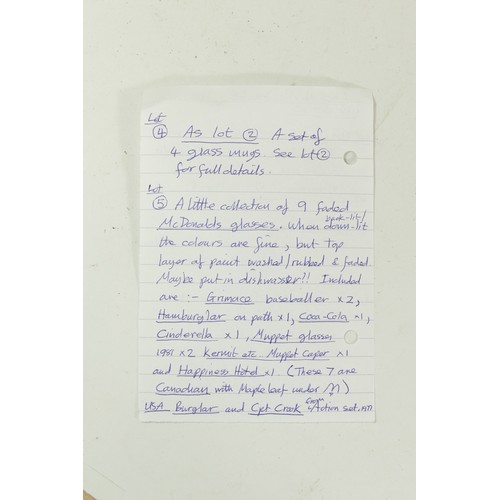 Lot
④ As lot ② A set of
4 glass mugs. See lot ②
for full details.
Lot
⑤ A little collection of 9 faded
McDonalds glasses. When back-lit/
down-lit
the colours are fine, but top
layer of paint washed/rubbed & faded.
Maybe put in dishwasser?! Included
are :- Grimace baseballer x2,
Hamburglar on path x1, Coca-Cola x1,
Cinderella x1, Muppet glasses
1981 x2 Kermit etc. Muppet Caper x1
and Happiness Hotel x1. (These 7 are
Canadian with Mapleleaf under M)
USA Burglar and Cpt Crook from
Action set. 1977